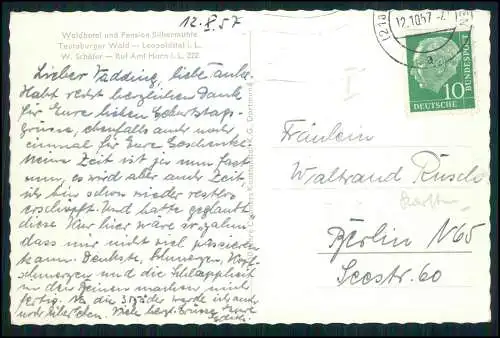 12.X.57
Waldhotel und Pension Silbermühle
Teutoburger Wald — Leopoldstal i. L.
W. Schäfer — Ruf Amt Horn i. L. 222
Lieber Vadding, liebe Tante.
Habt recht herzlichen Dank
für Eure lieben Geburtstags-
grüsse, ebenfalls auch noch
einmal für Eure Geschenke.
Meine Zeit ist ja nun fast
um, es wird aber auch Zeit
ich bin schon wieder restlos
erschöpft. Und hatte geglaubt
diese Kur hier wäre so zahm
dass mir nicht viel passieren
kann. Denkste, Schmerzen, Kopf-
schmerzen und die
in den Beinen machen mich
fertig. Na die 3 Tage werde ich auch
noch überstehen. Viele herzl. Grüsse Eure
12.10.57
DEUTSCHE BUNDESPOST
10
Fräulein
Waltraud Rusch
Berlin N65
Seestr. 60